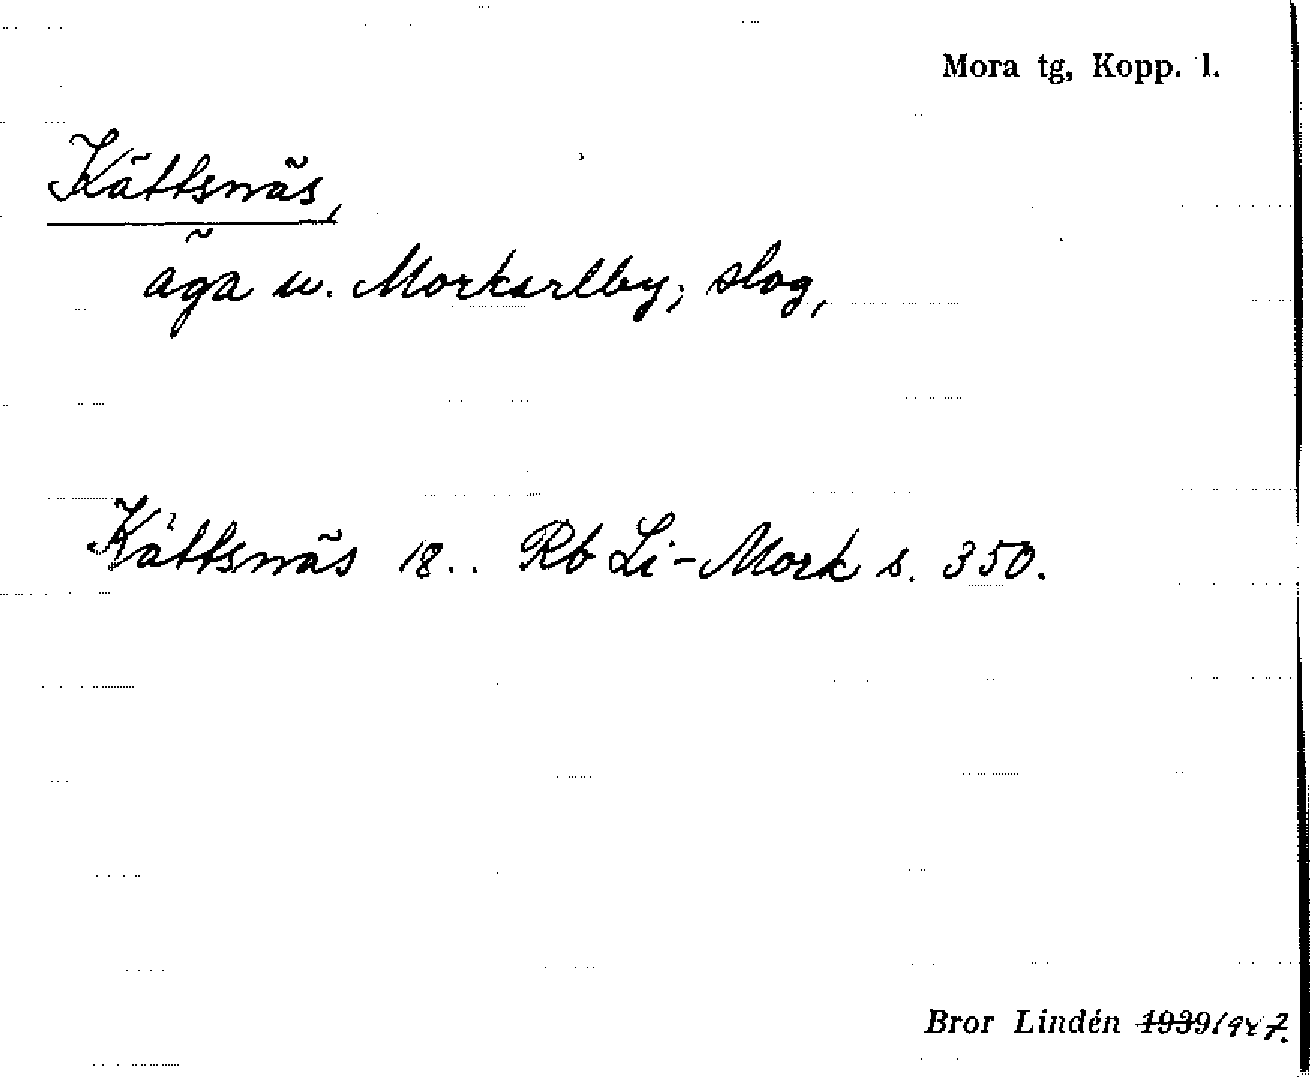 Mora tg, Kopp. l.
Kättsnäs,
äga u. Morkarlby; slog,
Kättsnäs 18.. Rb Li-Mork s. 350.
Bror Lindén 1939/947.